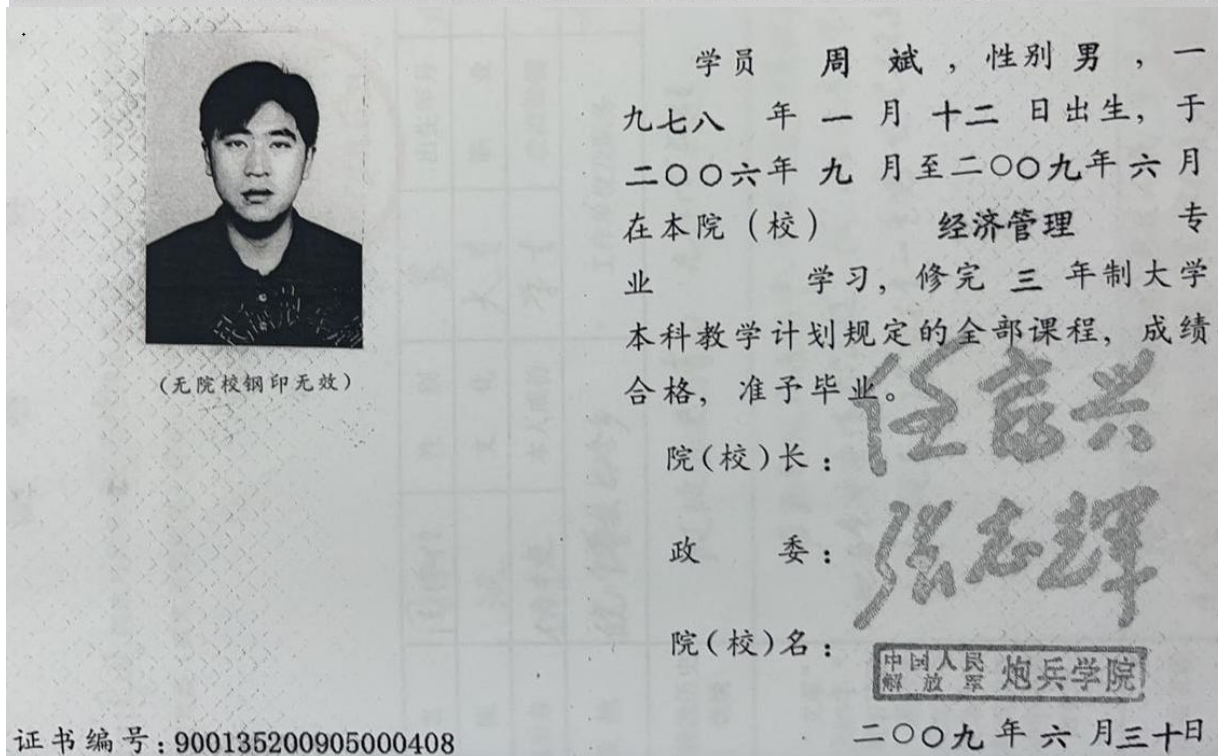 学员 周斌，性别男，一
九七八年一月十二日出生，于
二〇〇六年九月至二〇〇九年六月
在本院（校） 经济管理 专
业 学习，修完三年制大学
本科教学计划规定的全部课程，成绩
合格，准予毕业。
（无院校钢印无效）
院（校）长：
政 委：
张志辉
院（校）名：
中国人民解放军 炮兵学院
证书编号：900135200905000408
二〇〇九年六月三十日